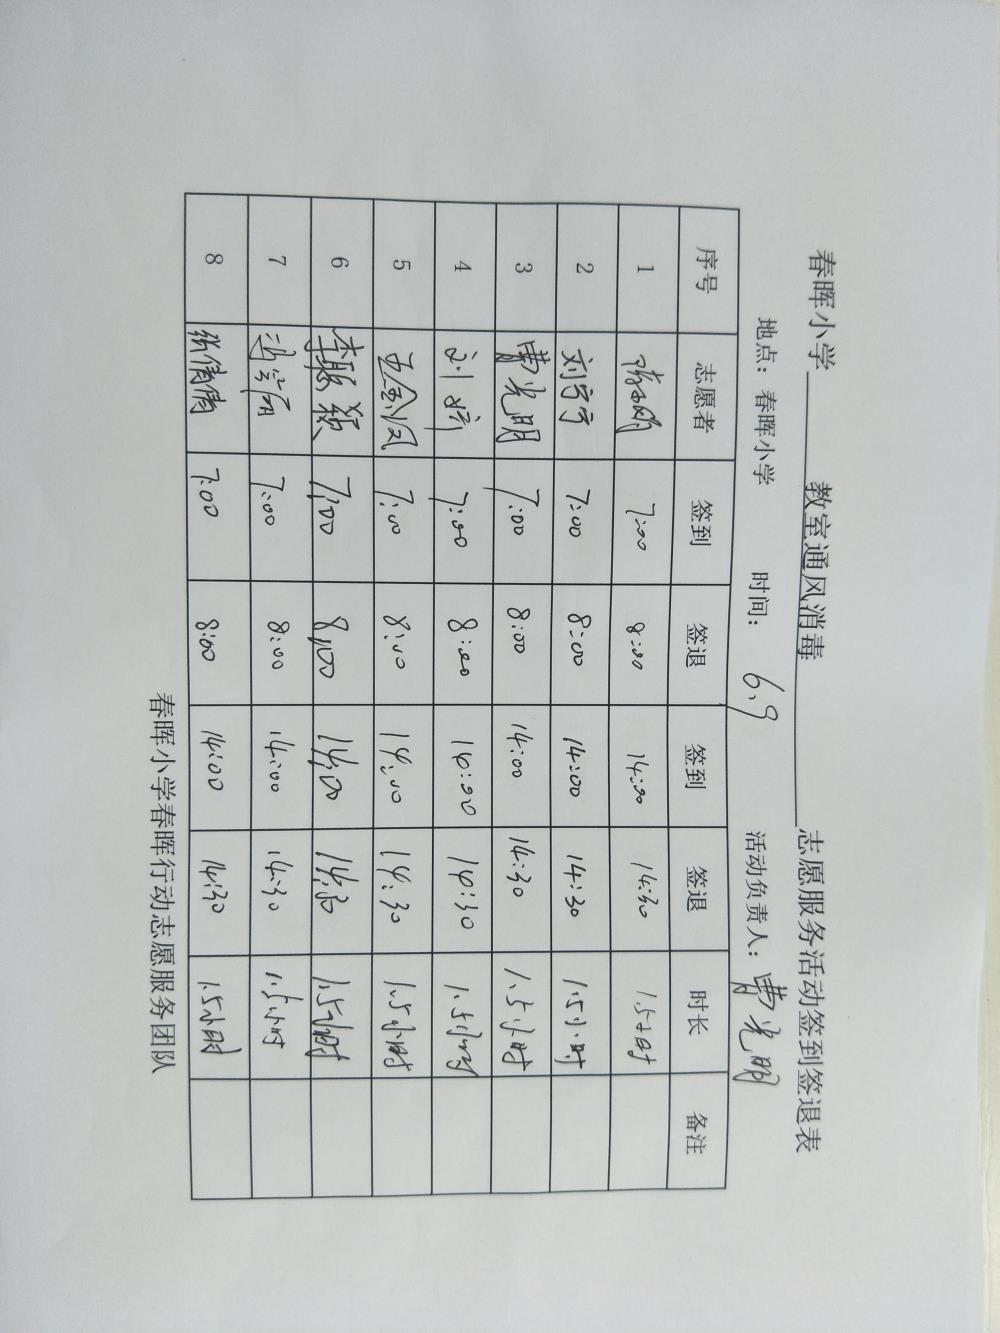 春晖小学 教室通风消毒 志愿服务活动签到签退表
地点：春晖小学 时间：6.9 活动负责人：曹光明
序号 志愿者 签到 签退 签到 签退 时长 备注
1 7:00 8:00 14:00 14:30 1.5小时
2 刘宁宁 7:00 8:00 14:00 14:30 1.5小时
3 曹光明 7:00 8:00 14:00 14:30 1.5小时
4 刘婷 7:00 8:00 14:00 14:30 1.5小时
5 王金凤 7:00 8:00 14:00 14:30 1.5小时
6 李颖 7:00 8:00 14:00 14:30 1.5小时
7 7:00 8:00 14:00 14:30 1.5小时
8 张倩倩 7:00 8:00 14:00 14:30 1.5小时
春晖小学春晖行动志愿服务团队